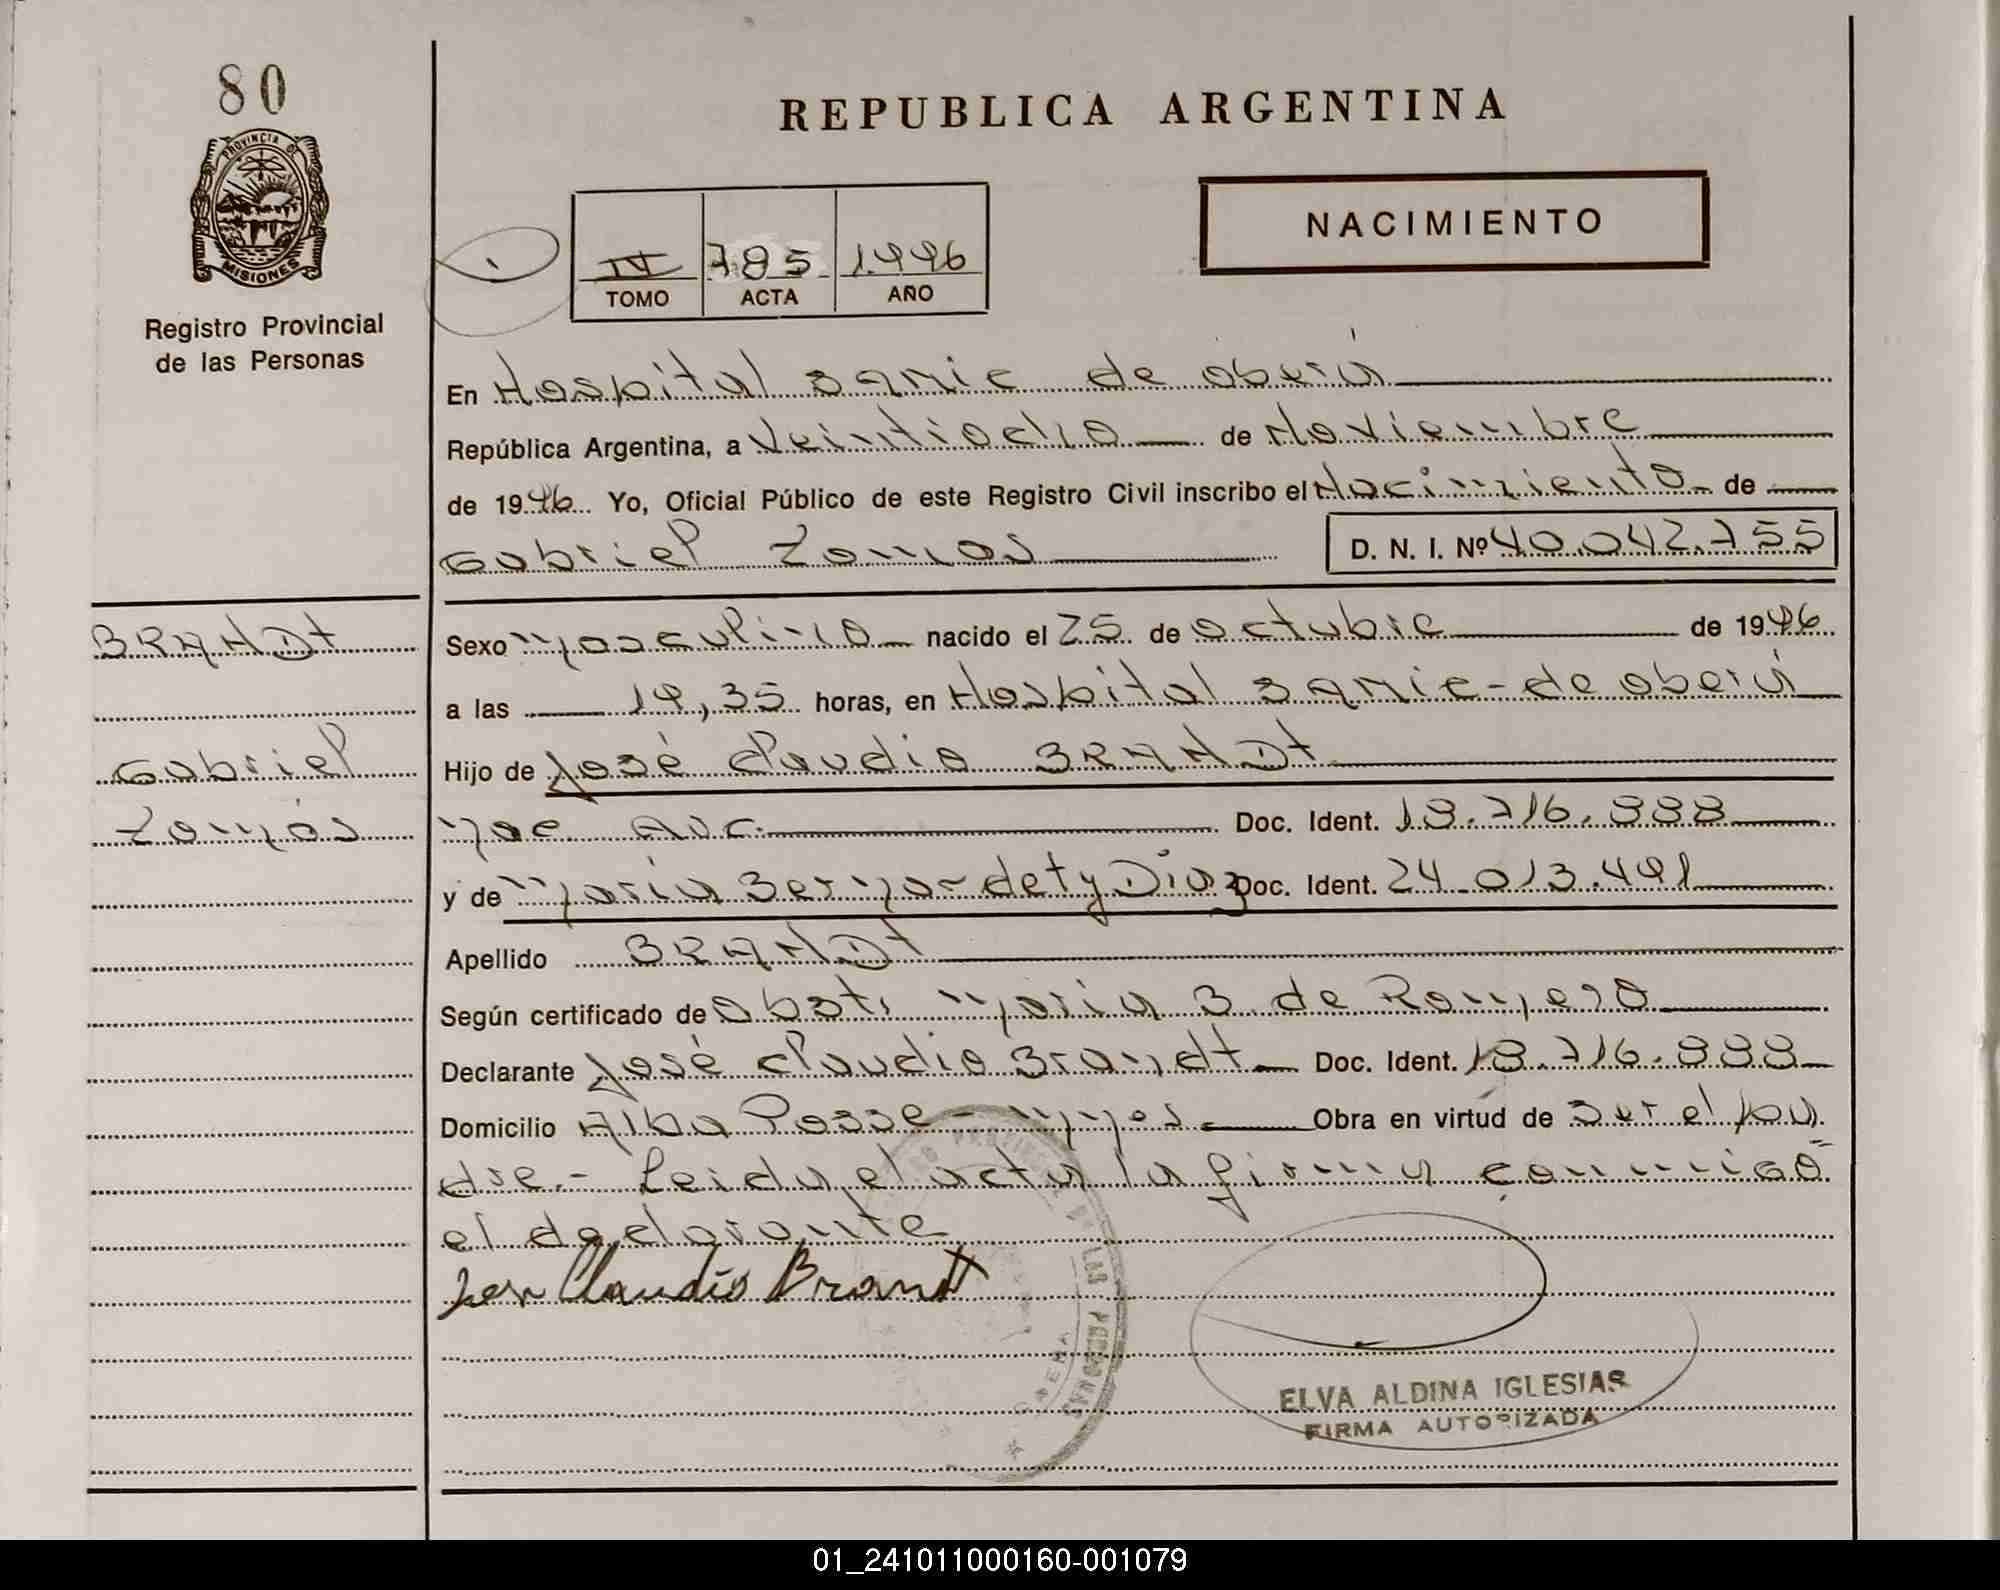 80
PROVINCIA DE
MISIONES
Registro Provincial
de las Personas
REPUBLICA ARGENTINA
NACIMIENTO
IV 785 1.996
TOMO ACTA AÑO
En Hospital SAMIC de oberá
República Argentina, a Veintiocho de Noviembre
de 1996. Yo, Oficial Público de este Registro Civil inscribo el Nacimiento de
Gabriel Tomás D. N. I. Nº 40.042.755
BRANDT
Gabriel
Tomás
Sexo Masculino nacido el 25 de octubre de 1996.
a las 19,35 horas, en Hospital SAMIC - de oberá
Hijo de José Claudio BRANDT
Nac. Arg. Doc. Ident. 18.716.888
y de María Bernardety Diaz Doc. Ident. 24.013.491
Apellido BRANDT
Según certificado de obst. María B. de Romero
Declarante José Claudio Brandt Doc. Ident. 18.716.888
Domicilio Alba Posse - Mnes Obra en virtud de Ser el pa
dre.- Leida el acta la firma conmigo
el declarante
Jose Claudio Brandt
PROVINCIAL DE LAS PERSONAS
ELVA ALDINA IGLESIAS
FIRMA AUTORIZADA
01_241011000160-001079